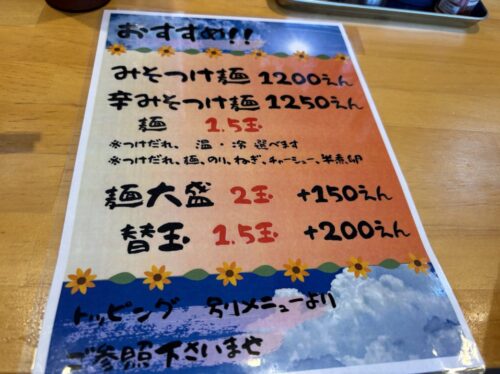 おすすめ!!
みそつけ麺 1200えん
辛みそつけ麺 1250えん
麺 1.5玉
※つけだれ、温・冷 選べます
※つけだれ、麺、のり、ねぎ、チャーシュー、半煮卵
麺大盛 2玉 +150えん
替玉 1.5玉 +200えん
トッピング 別メニューより
ご参照下さいませ